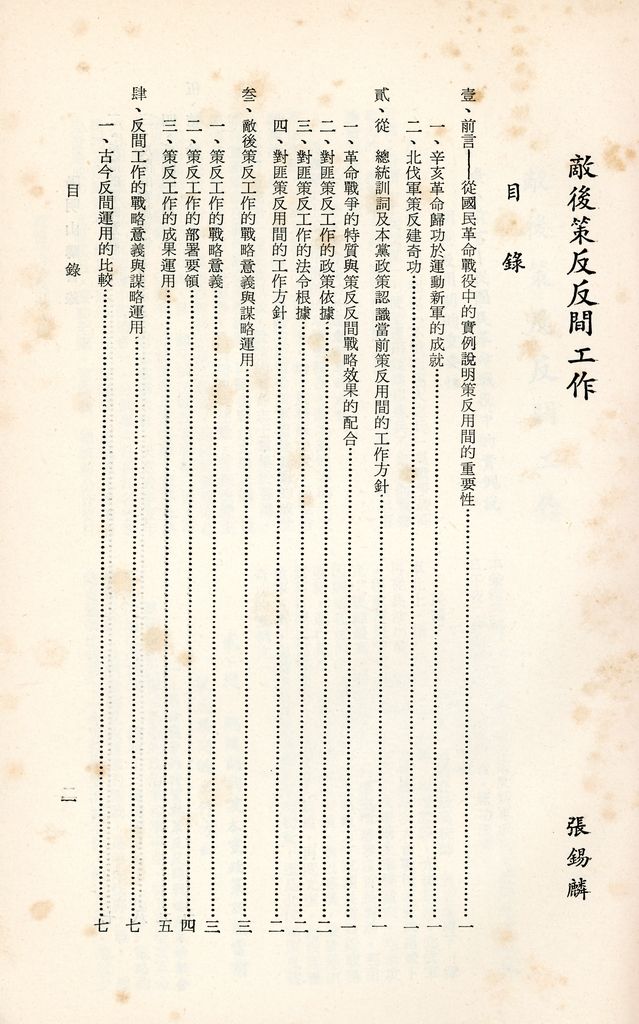 敵後策反反間工作
張錫麟
目錄
壹、前言——從國民革命戰役中的實例說明策反用間的重要性⋯⋯一
一、辛亥革命歸功於運動新軍的成就⋯⋯一
二、北伐軍策反建奇功⋯⋯一
貳、從 總統訓詞及本黨政策認識當前策反用間的工作方針⋯⋯一
一、革命戰爭的特質與策反反間戰略效果的配合⋯⋯一
二、對匪策反工作的政策依據⋯⋯二
三、對匪策反工作的法令根據⋯⋯二
四、對匪策反用間的工作方針⋯⋯二
叁、敵後策反工作的戰略意義與謀略運用⋯⋯三
一、策反工作的戰略意義⋯⋯三
二、策反工作的部署要領⋯⋯四
三、策反工作的成果運用⋯⋯五
肆、反間工作的戰略意義與謀略運用⋯⋯七
一、古今反間運用的比較⋯⋯七
目錄